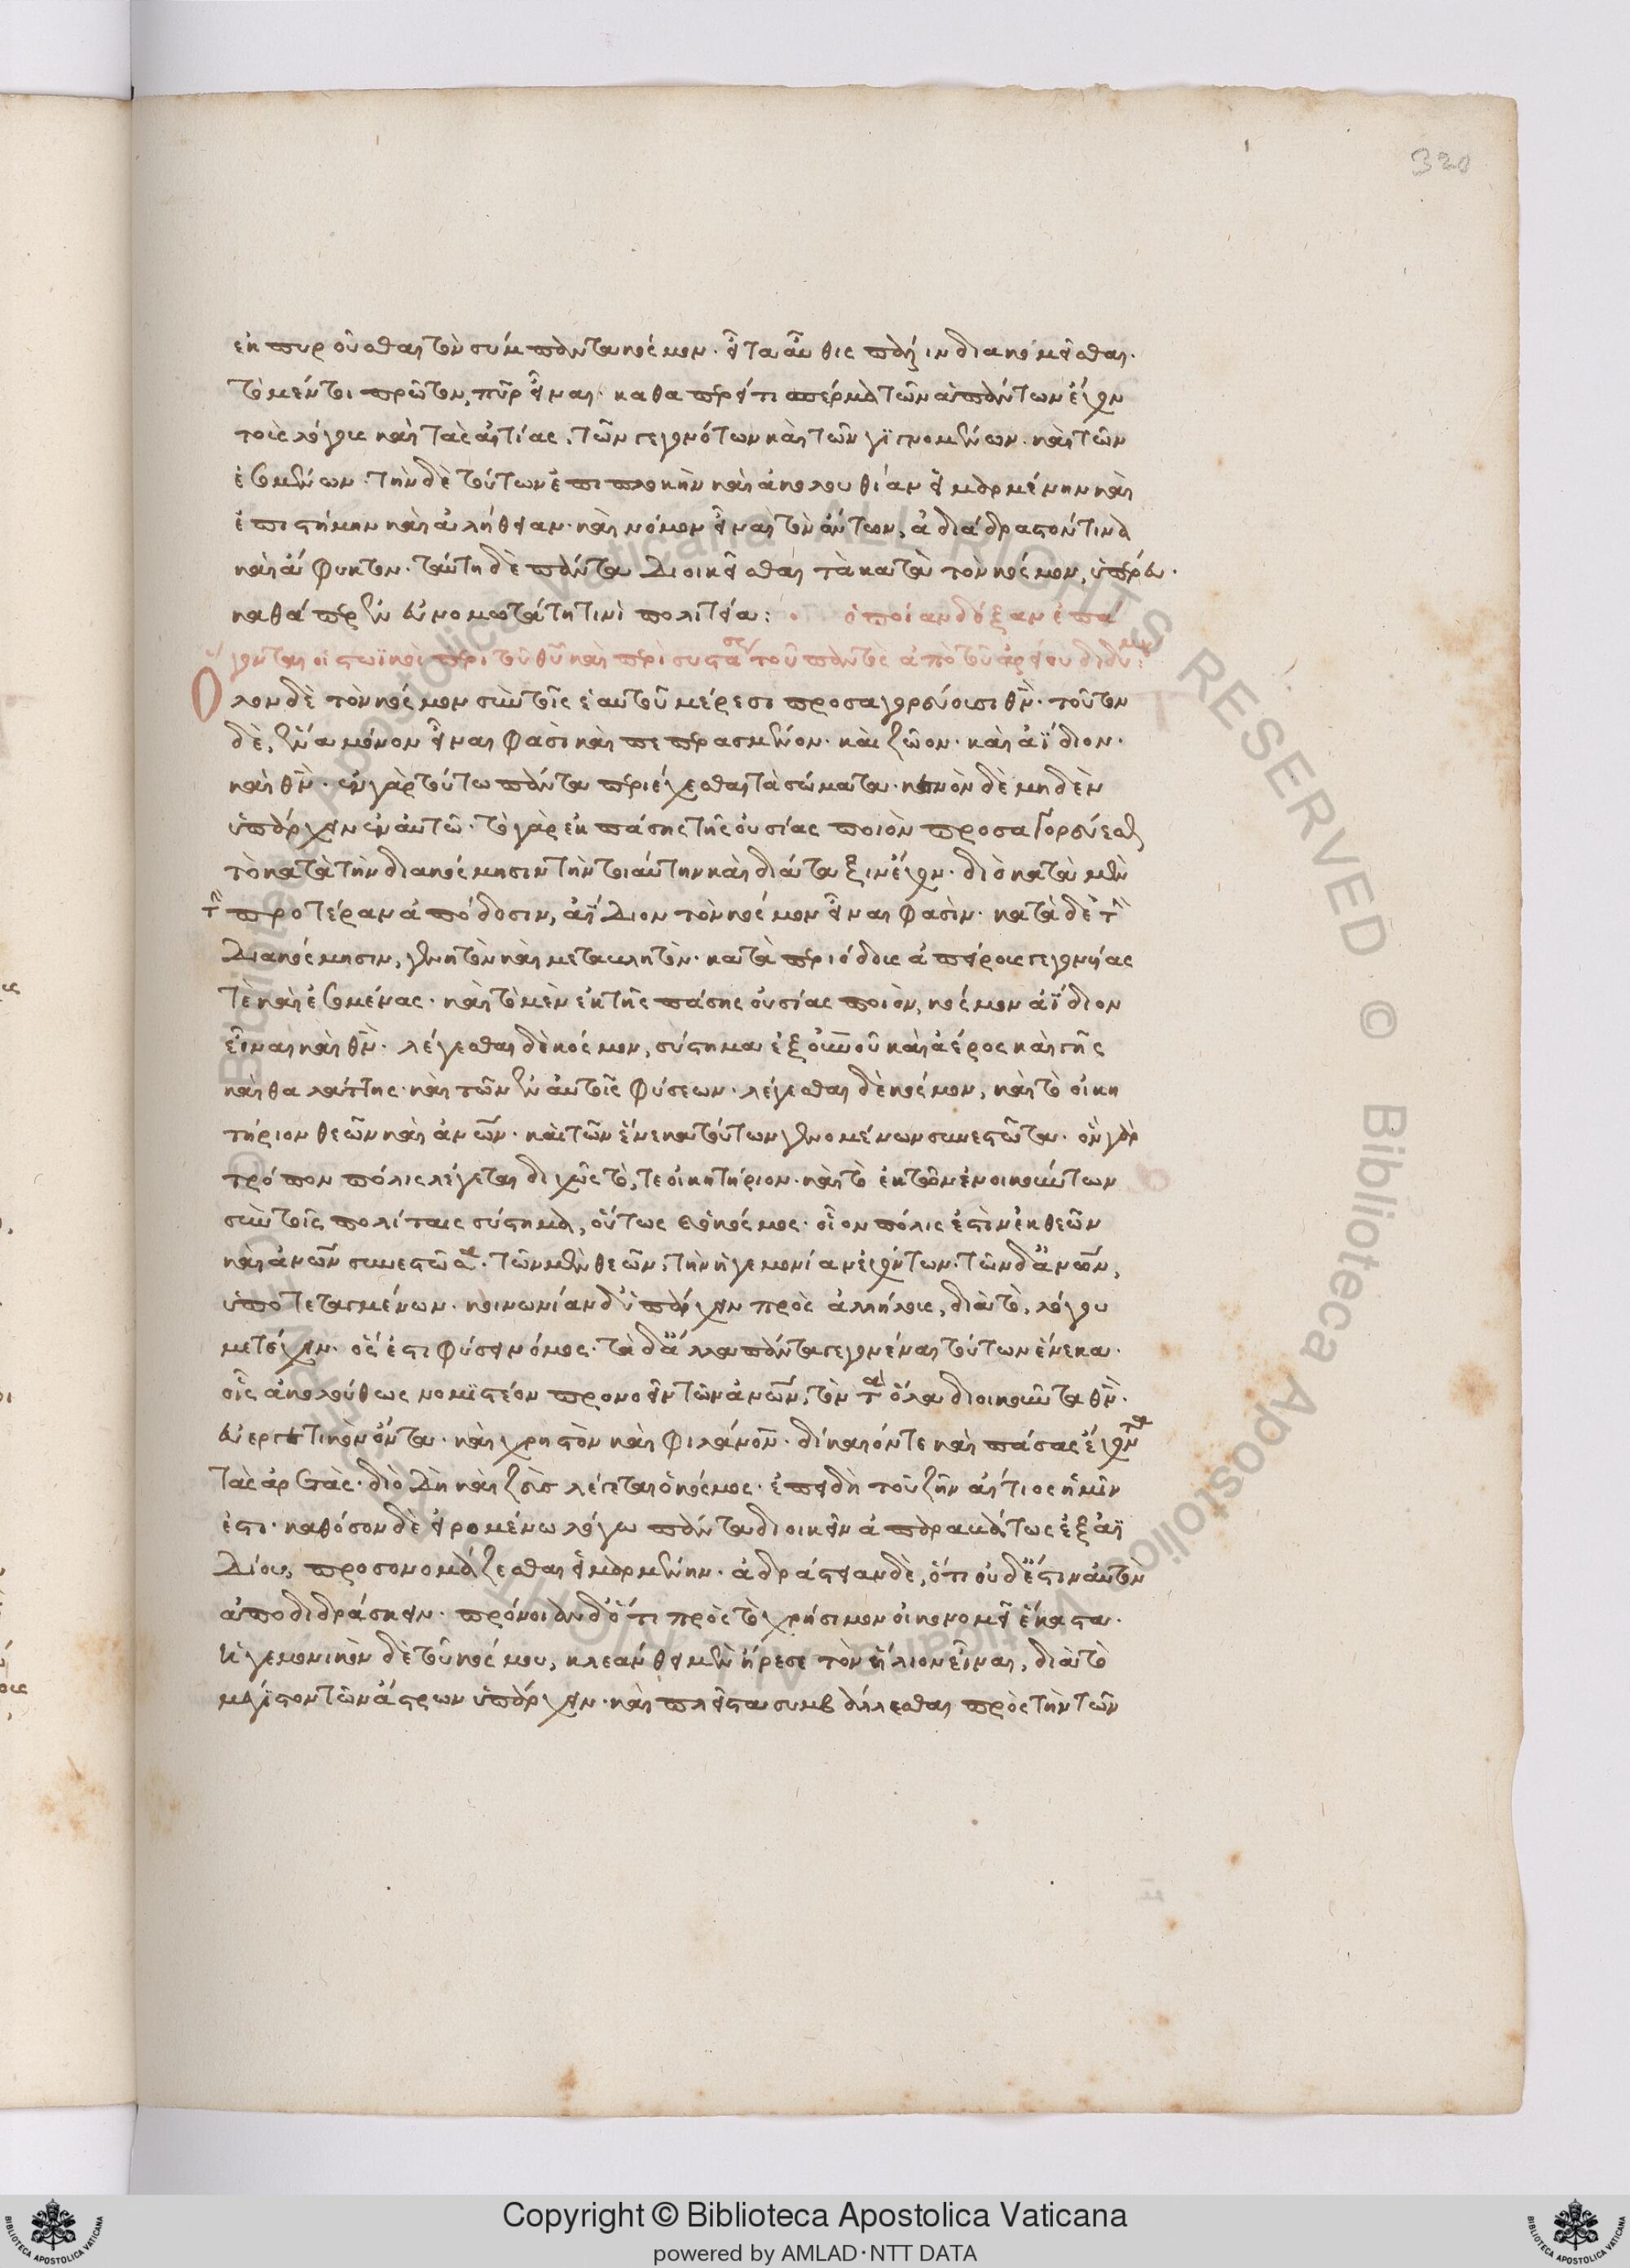 320
ἐκπυροῦσθαι τὸν σύμπαντα κόσμον. εἶτ' αὖθις πάλιν διακοσμεῖσθαι.
τὸ μέντοι πρῶτον, πῦρ εἶναι καθαπερεί τι σπέρμα τῶν ἁπάντων ἔχον
τοὺς λόγους καὶ τὰς αἰτίας, τῶν γεγονότων καὶ τῶν γιγνομένων. καὶ τῶν
ἐσομένων. τὴν δὲ τούτων ἐπιπλοκὴν καὶ ἀκολουθίαν εἱμαρμένην καὶ
ἐπιστήμην καὶ ἀλήθειαν. καὶ νόμον εἶναι τῶν ὄντων, ἀδιάδραστόν τινα
καὶ ἄφυκτον. ταύτῃ δὲ πάντα διοικεῖσθαι τὰ κατὰ τὸν κόσμον, ὑπέρευ.
καθάπερ ἐν εὐνομωτάτῃ τινὶ πολιτείᾳ: ὁποίαν δόξαν ἐπά
γονται οἱ στωϊκοὶ περὶ τοῦ θῦ καὶ περὶ συστάσε τοῦ παντὸς ἀπὸ τοῦ ἀρείου διδύμου:
Ὅλον δὲ τὸν κόσμον σὺν τοῖς ἑαυτοῦ μέρεσι προσαγορεύουσι θν̄. τοῦτον
δὲ, ἕνα μόνον εἶναι φασὶ καὶ πεπερασμένον. καὶ ζῶον. καὶ ἀΐδιον.
καὶ θν̄. ἐν γὰρ τούτω πάντα περιέχεσθαι τὰ σώματα. κενὸν δὲ μηδὲν
ὑπάρχειν ἐν αὐτῶ. τὸ γὰρ ἐκ πάσης τῆς οὐσίας ποιὸν προσαγορεύεσθαι
τὸ κατὰ τὴν διακόσμησιν τὴν τοιαύτην καὶ διάταξιν ἔχον. διὸ κατὰ μὲν
τὴν προτέραν ἀπόδοσιν, ἀΐδιον τὸν κόσμον εἶναι φασὶν. κατὰ δὲ τὴν
διακόσμησιν, γενητὸν καὶ μεταβλητὸν. κατὰ περιόδους ἀπείρους γεγονυίας
τὲ καὶ ἐσομένας. καὶ τὸ μὲν ἐκ τῆς πάσης οὐσίας ποιὸν, κόσμον ἀΐδιον
εἶναι καὶ θν̄. λέγεσθαι δὲ κόσμον, σύστημα ἐξ οὐνοῦ καὶ ἀέρος καὶ γῆς
καὶ θαλάττης. καὶ τῶν ἐν αὐτοῖς φύσεων. λέγεσθαι δὲ κόσμον, καὶ τὸ οἰκη
τήριον θεῶν καὶ ἀνων̄. καὶ τῶν ἕνεκα τούτων γενομένων συνεστῶτα. ὃν γὰρ
τρόπον πόλις λέγεται διχῶς τὸ, τε οἰκητήριον. καὶ τὸ ἐκ τῶν ἐνοικούντων
σὺν τοῖς πολίταις σύστημα, οὕτως ὁ κόσμος. οἷον πόλις ἐστὶν ἐκ θεῶν
καὶ ἀνων̄ συνεστῶσα. τῶν μὲν θεῶν, τὴν ἡγεμονίαν ἐχόντων. τῶν δ' ἀνων̄,
ὑποτεταγμένων. κοινωνίαν δ' ὑπάρχειν πρὸς ἀλλήλους, διὰ τὸ, λόγου
μετέχειν. ὅς ἐστι φύσει νόμος. τὰ δ' ἄλλα πάντα γεγονέναι τούτων ἕνεκα.
οἷς ἀκολούθως νομιστέον προνοεῖν τῶν ἀνων̄, τὸν τὰ ὅλα διοικοῦντα θν̄.
εὐεργετικὸν ὄντα. καὶ χρηστὸν καὶ φιλάνον̄. δίκαιόν τε καὶ πάσας ἔχοντα
τὰς ἀρετὰς. διὸ δὴ καὶ ζεὺς λέγεται ὁ κόσμος. ἐπειδὴ τοῦ ζῆν αἴτιος ἡμῖν
ἐστι. καθόσον δὲ εἰρομένω λόγω πάντα διοικεῖν ἀπαραβάτως ἐξ ἀϊ
δίου, προσονομάζεσθαι εἱμαρμένην. ἀδράστειαν δὲ, ὅτι οὐδέστιν αὐτὸν
ἀποδιδράσκειν. πρόνοιαν δ' ὅτι πρὸς τὸ χρήσιμον οἰκονομεῖ ἕκαστα.
ἡγεμονικὸν δὲ τοῦ κόσμου, κλεάνθει μὲν ἤρεσε τὸν ἥλιον εἶναι, διὰ τὸ
μέγιστον τῶν ἄστρων ὑπάρχειν. καὶ πλεῖστα συμβάλλεσθαι πρὸς τὴν τῶν
Copyright © Biblioteca Apostolica Vaticana
powered by AMLAD·NTT DATA